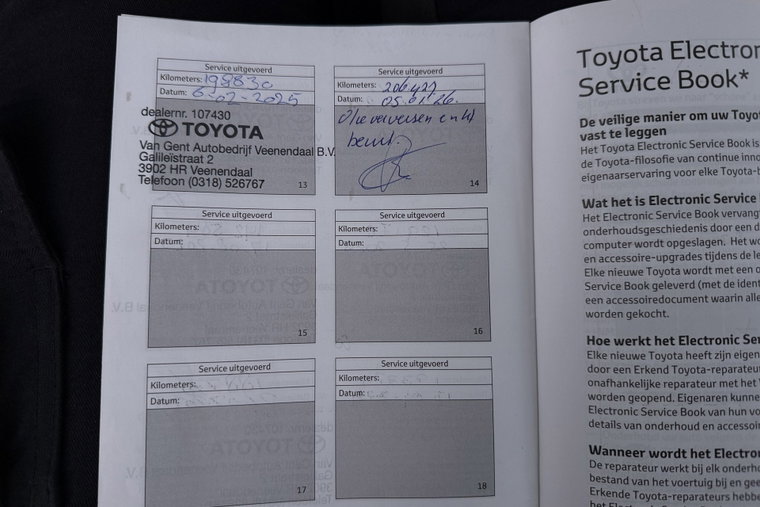 Service uitgevoerd
Kilometers: 198830
Datum: 6-02-2025
dealernr. 107430
TOYOTA
Van Gent Autobedrijf Veenendaal B.V.
Galileïstraat 2
3902 HR Veenendaal
Telefoon (0318) 526767
13
Service uitgevoerd
Kilometers:
Datum: 05.01.26.
Olie verversen
beurt.
14
Service uitgevoerd
Kilometers:
Datum:
15
Service uitgevoerd
Kilometers:
Datum:
16
Service uitgevoerd
Kilometers:
Datum:
17
Service uitgevoerd
Kilometers:
Datum:
18
Toyota Electron
Service Book*
De veilige manier om uw Toyot
vast te leggen
Het Toyota Electronic Service Book is
de Toyota-filosofie van continue inno
eigenaarservaring voor elke Toyota-b
Wat het is Electronic Service
Het Electronic Service Book vervangt
onderhoudsgeschiedenis door een d
computer wordt opgeslagen. Het wo
en accessoire-upgrades tijdens de le
Elke nieuwe Toyota wordt met een o
Service Book geleverd (met de ident
een accessoiredocument waarin alle
worden gekocht.
Hoe werkt het Electronic Ser
Elke nieuwe Toyota heeft zijn eigen
door een Erkend Toyota-reparateur
onafhankelijke reparateur met het
worden geopend. Eigenaren kunne
Electronic Service Book van hun vo
details van onderhoud en accessoir
Wanneer wordt het Electron
De reparateur werkt bij elk onderho
bestand van het voertuig bij en gee
Erkende Toyota-reparateurs hebbe